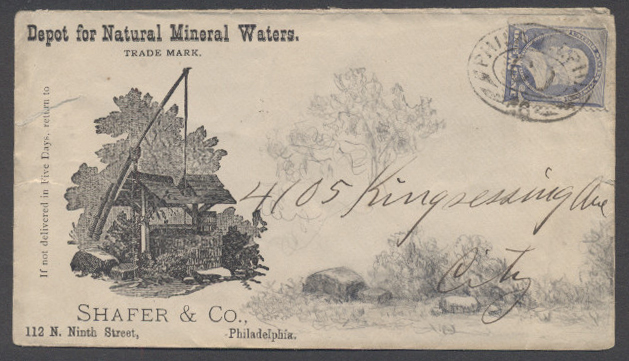 Depot for Natural Mineral Waters.
TRADE MARK.
If not delivered in Five Days, return to
4105 Kingsessing Ave
City
SHAFER & CO.,
112 N. Ninth Street, Philadelphia.